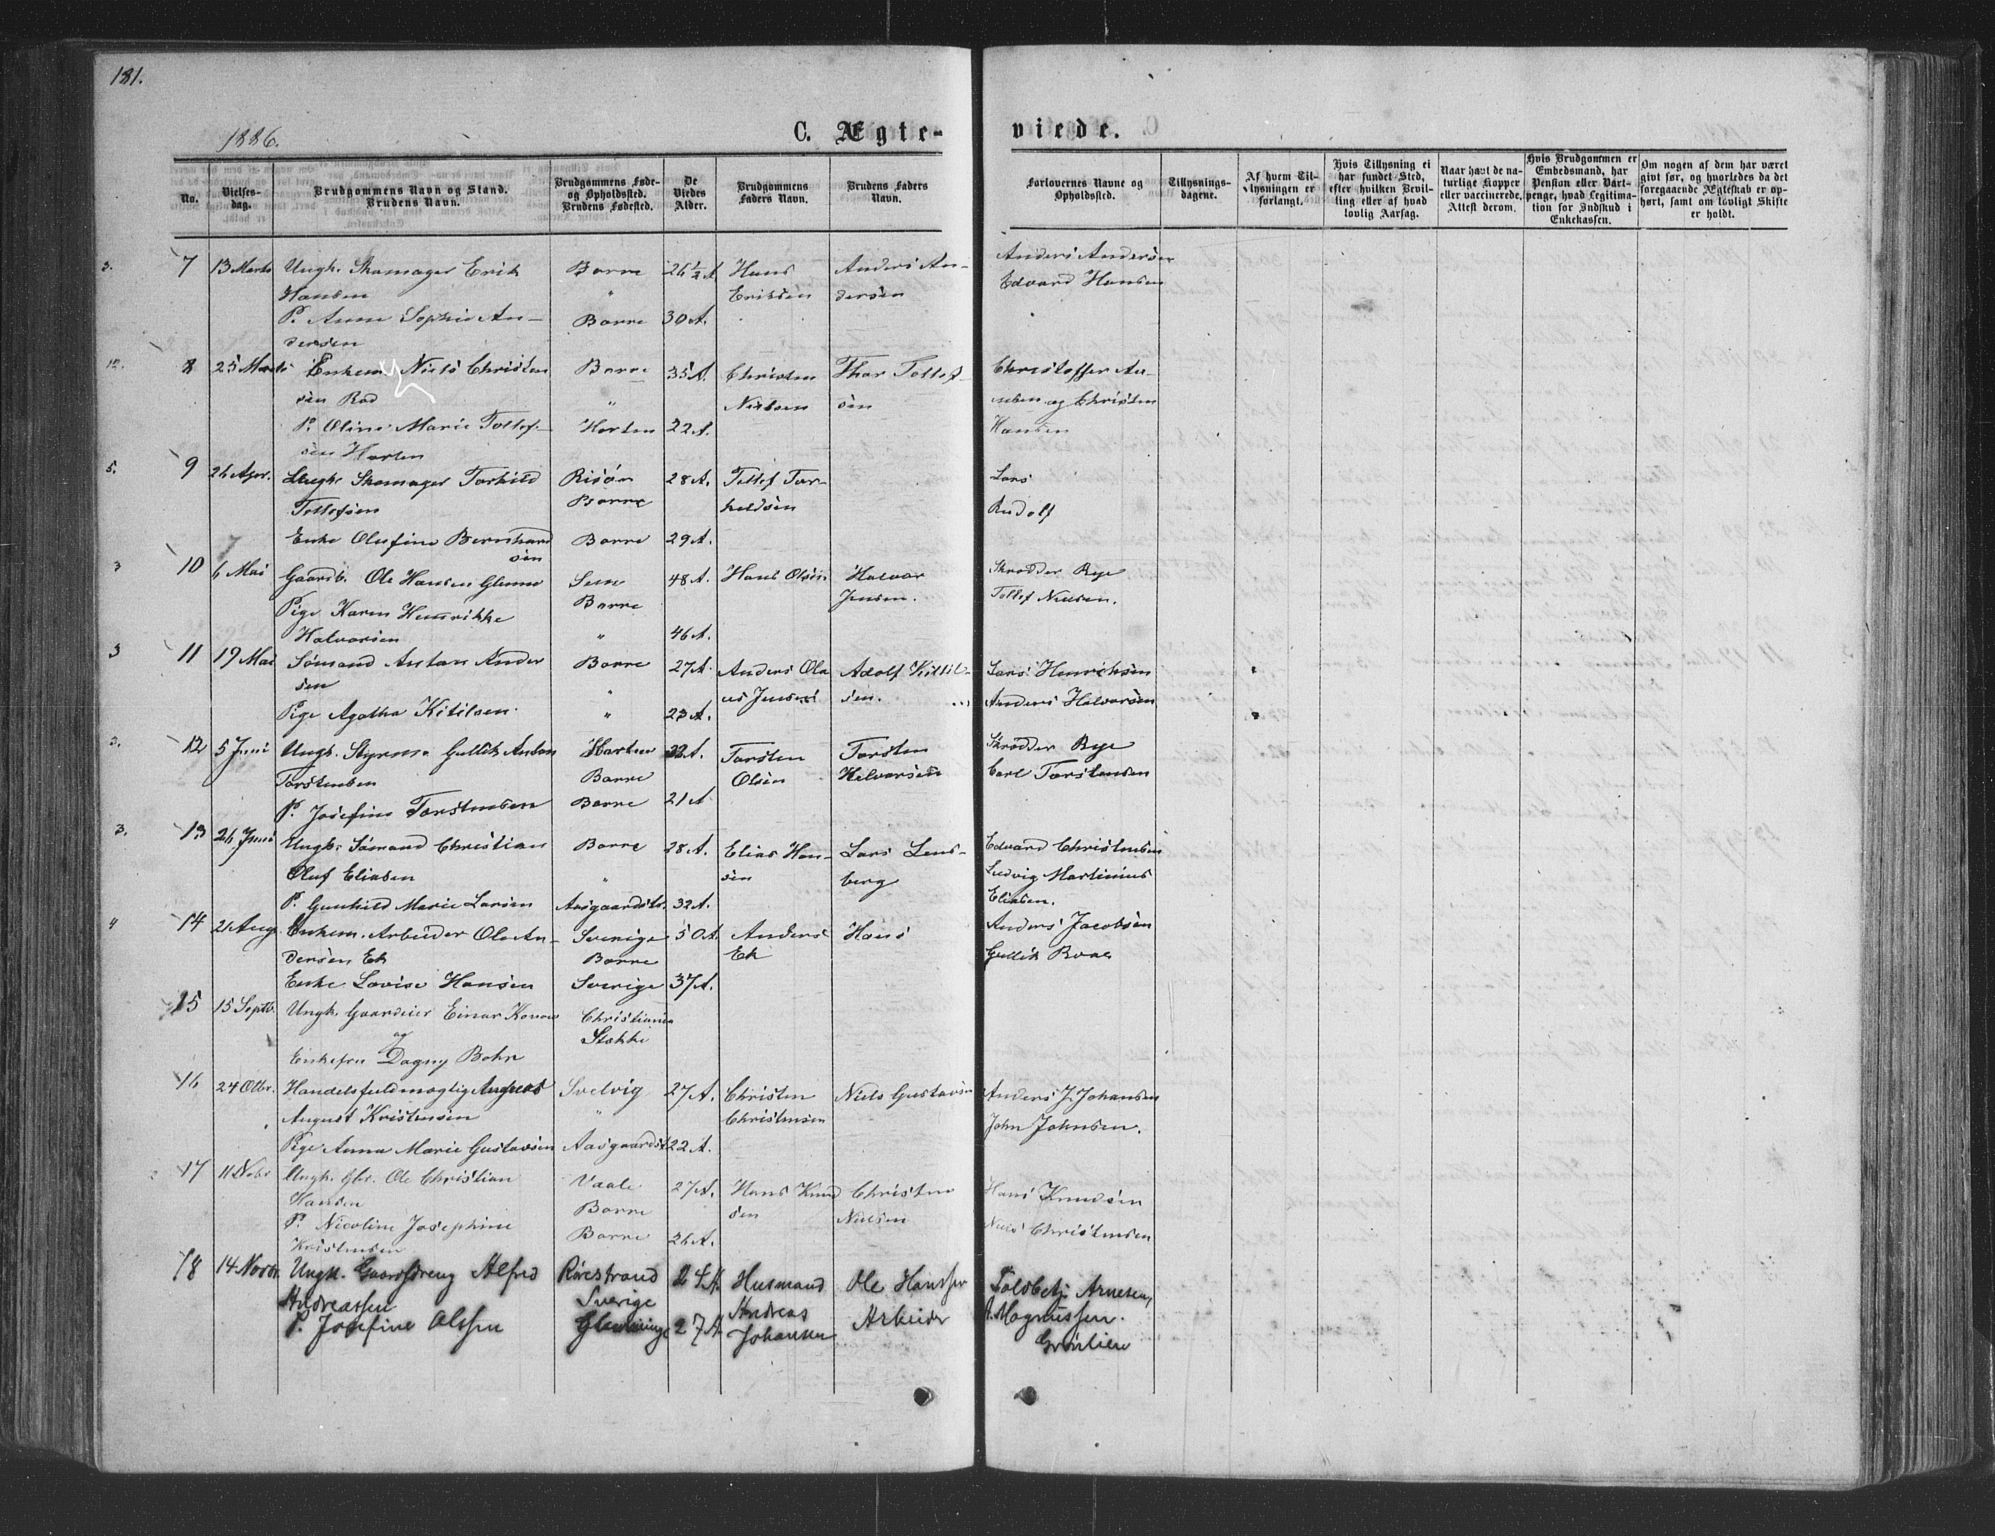 181.
1886.
C. Ægte-
viede.
No.
Vielses-dag.
Brudgommens Navn og Stand. Brudens Navn.
Brudgommens Føde- og Opholdssted. Brudens Fødested.
De Viedes Alder.
Brudgommens Faders Navn.
Brudens Faders Navn.
Forlovernes Navne og Opholdssted.
Tillysnings-dagene.
Af hvem Tillysningen er forlangt.
Hvis Tillysning ei har fundet Sted, efter hvilken Bevilling eller af hvad lovlig Aarsag.
Naar havt de naturlige Kopper eller vaccinerede, Attest derom.
Hvis Brudgommen er Embedsmand, har Pension eller Vartpenge, hvad Legitimation for Indskud i Enkekassen.
Om nogen af dem har været givt før, og hvorledes da det foregaaende Ægteskab er ophørt, samt om lovligt Skifte er holdt.
3. 7 13 Marts Ungk. Skomager Erik Borre 26 1/2 A Hans Anders An- Anders Andersen
Hansen " Eriksen dersen Edvard Hansen
P. Anne Sophie An- Borre 30 A.
dersen
12. 8 25 Marts Enkem. Niels Christen Borre 35 A. Christen Thor Tollef- Christoffer An-
sen Rød " Nielsen sen og Christen
P. Oline Marie Tollef- Horten 22 A. Hansen
sen Horten
5. 9 26 Apr. Ungk. Skomager Torkild Risør 28 A. Tollef Tor- Lars
Tollefsen Borre keldsen Rudolf
Enke Olufine Bernhard Borre 29 A.
sen
3 10 6 Mai Gaardb. Ole Hansen Sem 48 A. Hans Olsen Halvor Skrædder Bye
Pige Karen Henrikke Borre Jensen. Tollef Nielsen.
Halvorsen " 46 A.
3 11 19 Mai Sømand Anton Ander Borre 27 A. Anders Ola Adolf Kittil- Lars Henriksen
sen " us Jensen sen. Anders Halvorsen
Pige Agathe Kitilsen. " 23 A.
3. 12 5 Juni Ungk. Styrm. Gullik Anton Horten A. Torsten Torsten Skrædder Bye
Torstensen Borre Olsen Halvorsen Carl Torstensen
P. Josefine Torstensen Borre 21 A
3. 13 26 Juni Ungk. Sømand Christian Borre 28 A. Elias Han- Lars Lens- Edvard Christensen
Oluf Eliasen " sen berg Ludvig Martinius
P. Gunhild Marie Larsen Aasgaardstr. 32 A. Eliasen.
4 14 21 Aug. Enkem. Arbeider Ole An- Sverige 50 A. Anders Hans Anders Jacobsen
dersen Ek Borre Ek Gullik
Enke Lovise Hansen Sverige 37 A.
15 15 Septb. Ungk. Gaardeier Einar Christiania
og Stokke
Enkefru Dagny Bohn
16 24 Otbr. Handelsfuldmægtig Andreas Svelvig 27 A. Christen Niels Gustavsen Anders J. Johansen
August Kristensen " Christensen John Johnsen.
Pige Anna Marie Gustavsen Aasgaardst. 22 A.
17 11 Nobr Ungk. Gbr. Ole Christian Vaale 27 A. Hans Knud Christen Hans Knudsen
Hansen Borre sen Nielsen Niels Christensen
P. Nicoline Josephine Borre 26 A.
Kristensen
18 14 Novbr. Ungk. Gaardsdreng Alfred Rörestrand 24 A. Husmand Ole Hanssen Toldbetj. Arnesen,
Andreassen Sverige Andreas Arbeider A. Magnussen.
P. Josefine Olssen 27 A Johansen Grønlien